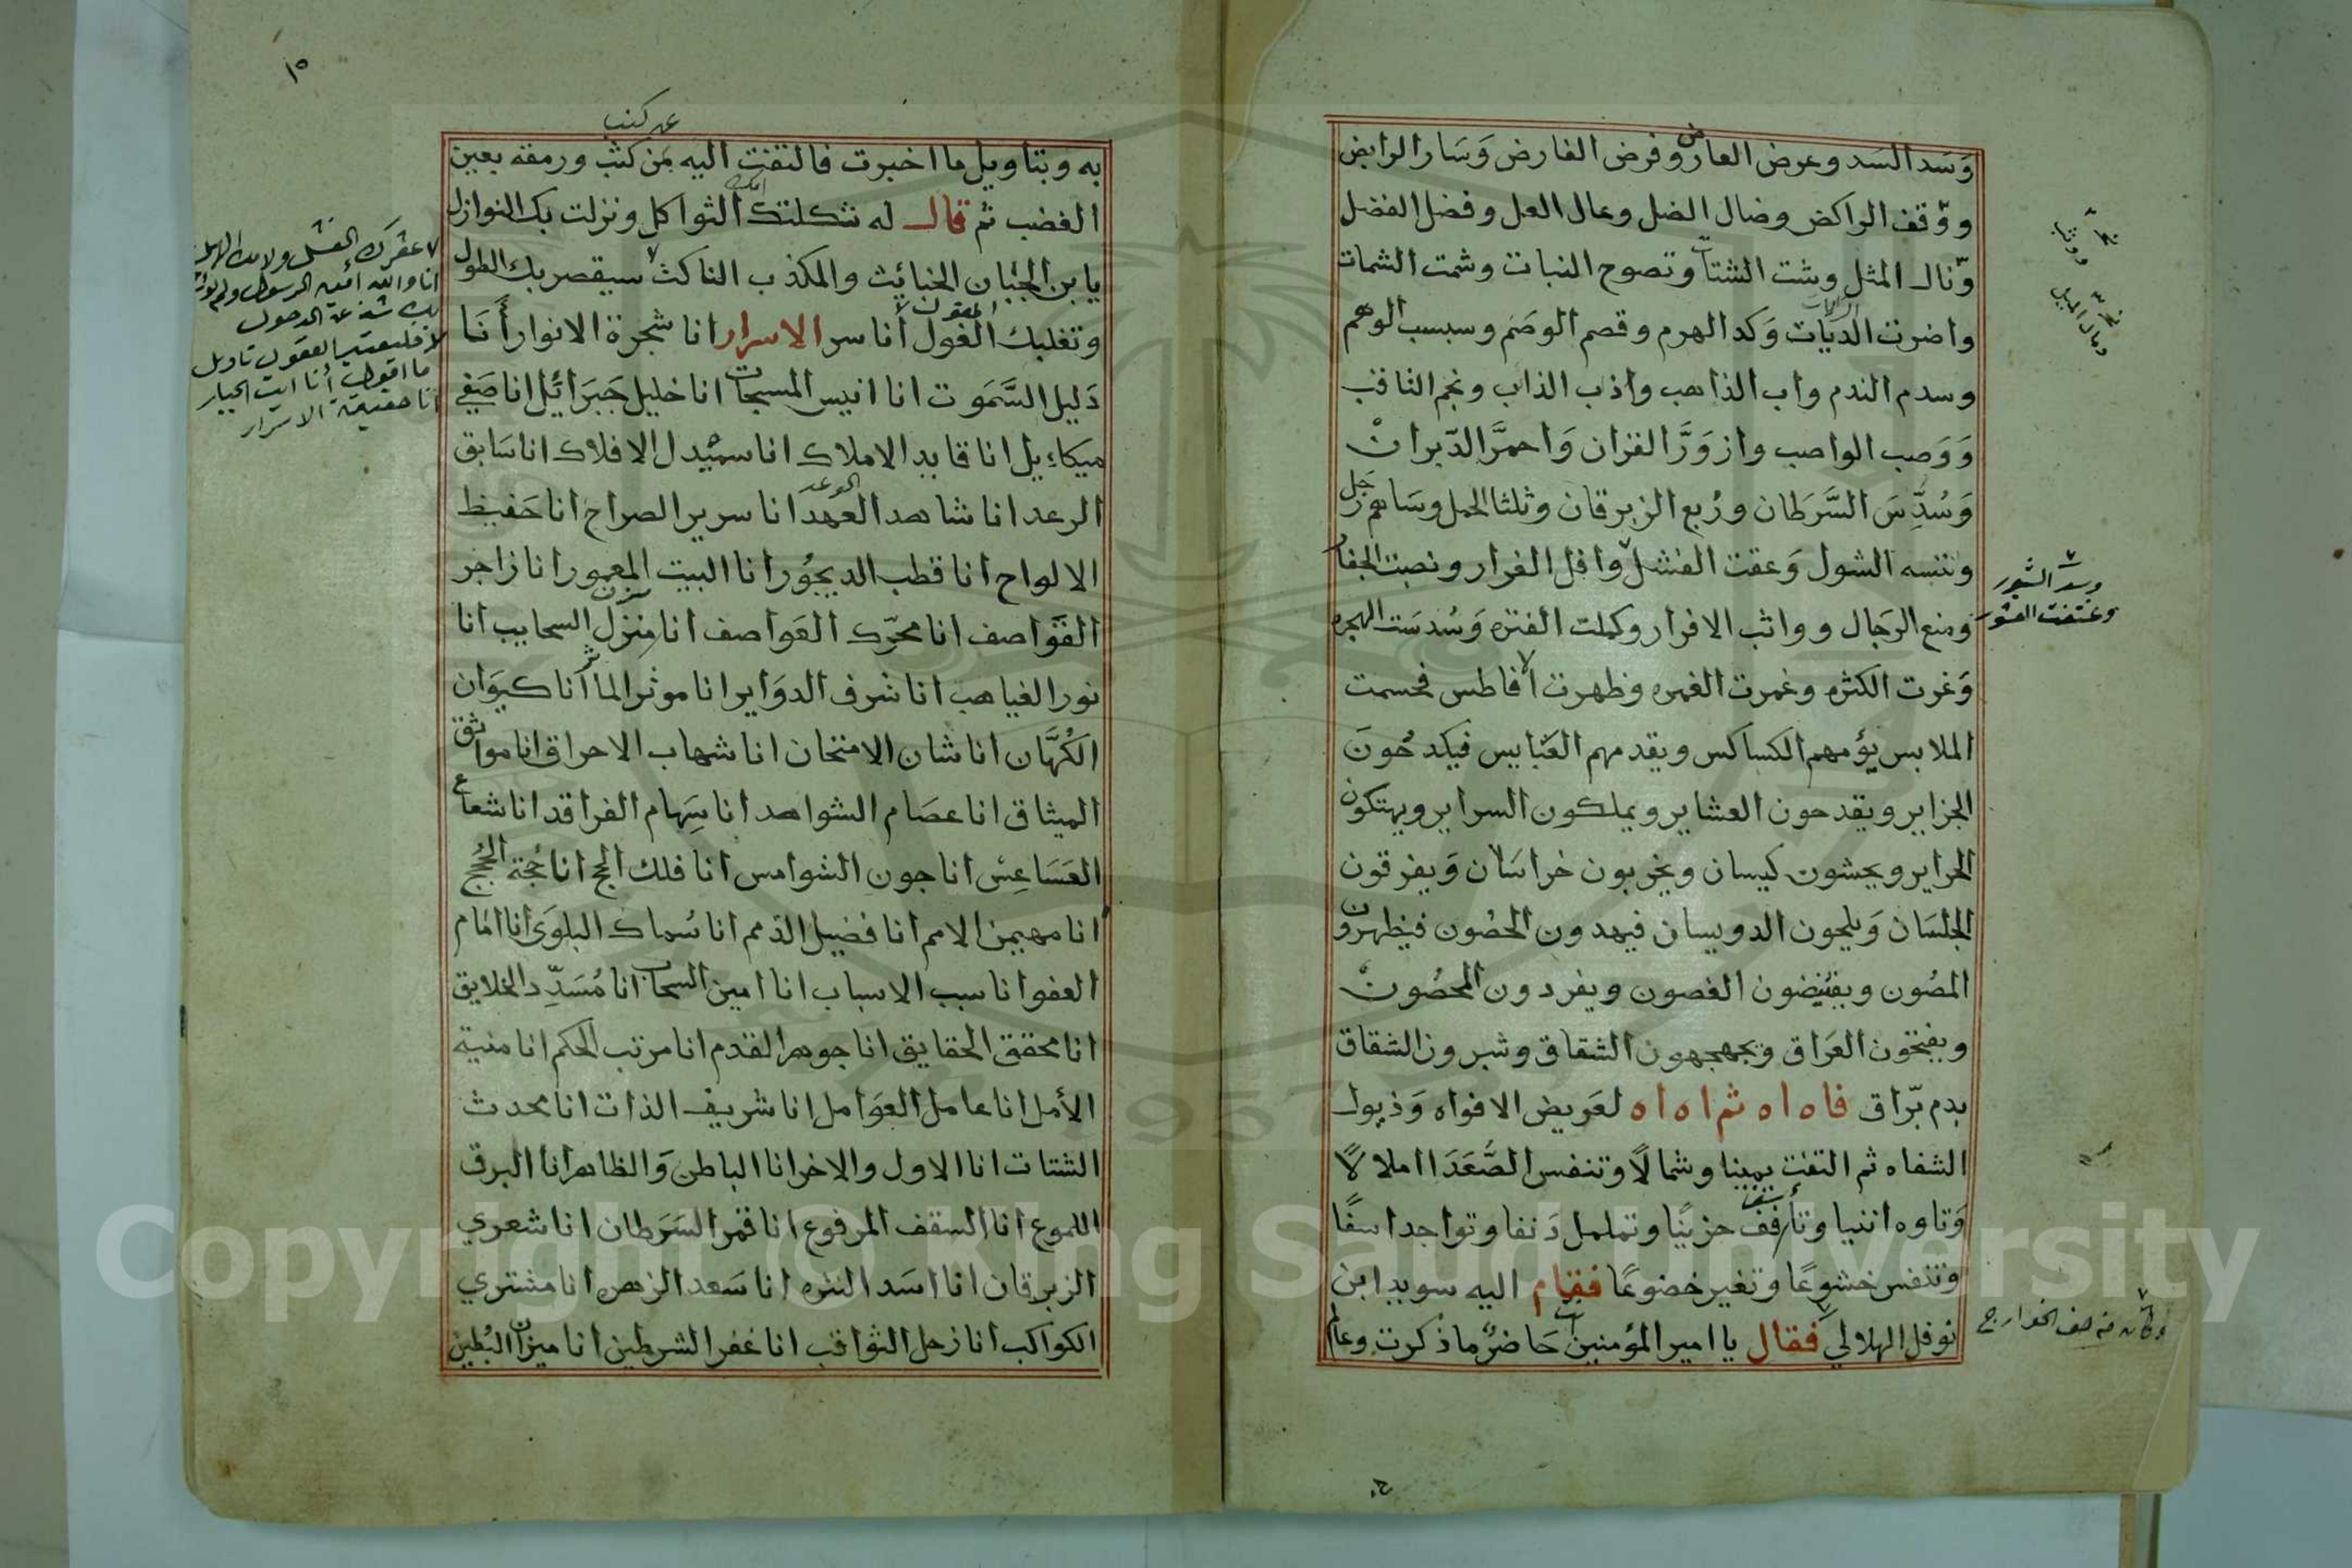 وَسَد السَد وعرض العارض وفرض الفارض وَسَار الرابض
ووّقف الراكض وضال الضل وعال العل وفضل الفضل
وّنال المثل وشت الشتات وتصوح النبات وشمت الشمات
واضرت الديَات وَكد الهرم وقصم الوصَم وسبسب الوهم
وسدم الندم واب الذاهب واذب الذاب ونجم الثاقب
وَوَصب الواصب وازوَرَّ القران وَاحمرَّ الدّبران
وَسُدِّسَ السَّرَطان ورُبع الزبرقان وثلثا الحمل وسَاهم زحل
وننسه الشول وَعقت الفشل وافل الفرار ونصبت الجفار
ومنع الرجَال وواثب الافرار وكملت الفتره وَسُدسَت الهجره
وَغرت الكثره وغمرت الغمره وظهرت الافاطس فحسمت
الملابس يؤمهم الكساكس ويقدمهم العَبابيس فيكدحُونَ
الجزاير ويقدحون العشاير ويملكون السراير ويهتكون
الحراير ويجشون كيسان ويخربون خراسَان وَيفرقون
الجلسَان وَيلجون الدويسان فيهدون الحصُون فيظهرون
المصُون ويقتضون الغصون ويفردون المحصُون
ويفتحون العَراق ويجهجهون الشقاق وشبرون الشقاق
بدم برّاق فاه اه ثم اه اه لعَريض الافواه وَذبول
الشفاه ثم التفت يمينا وشمالاً وتنفس الصُّعَدَا املالاً
وَتاوه اننيا وتأفف حزينًا وتململ دَنفا وتواجد اسفًا
وتنفس خشوعًا وتغير خضوعًا فقام اليه سويد ابن
نوفل الهلالي فقال يا امير المؤمنين انت حَاضرٌ ما ذكرت وعالم
وسدّ الشبور
وكان من صف الخوارج
١٥
به وبتاويل ما اخبرت فالتفت اليه مَن كثب ورمقه بعين
الغضب ثم قال له ثكلتك الثواكل ونزلت بك النوازل
يا بن الجَبان الخبائث والمكذب الناكث سيقصر بك الطول
وتغلبك الغول أنا سر الاسرار انا شجرة الانوار أَنَا
دَليل السَّمَوت انا انيس المسبحات انا خليل جَبَرائَل انا صَفي
ميكاءيل انا قايد الاملاك انا سميدل الافلاك انا سَابق
الرعد انا شاهد العهد انا سرير الصراح انا حَفيظ
الالواح انا قطب الديجُور انا البيت المعمور انا زاجر
القَوَاصف انا محرّك العَواصف انا مِنزل السحايب انا
نور الغياهب انا شرف الدوَاير انا موثر الماثر انا كيوَان
الكُهَّان انا شان الامتحان انا شهاب الاحراق انا مواثق
الميثاق انا عصَام الشواهد انا سِهام الفراقد انا شعاع
العَسَاعِس انا جون الشوامس انا فلك اللجج انا حُجة الحُجج
انا مهيمن الامم انا فضيل الذمم انا سُماك البلوَى انا امَام
العفو انا سبب الاسباب انا امين السحاب انا مُسَدِّد الخلايق
انا محقق الحقايق انا جوهر القدم انا مرتب الحكم انا منية
الأمل انا عامل العوَامل انا شريف الذات انا محدث
الشتات انا الاول والاخر انا الباطن وَالظاهر انا البرق
اللموع انا السقف المرفوع انا قمر السَرَطان انا شعري
الزبرقان انا اسَد النثره انا سَعد الزهره انا مشتري
الكواكب انا زحل الثواقب انا غفر الشرطين انا ميزان البُطين
انا حقيقة الاسرار